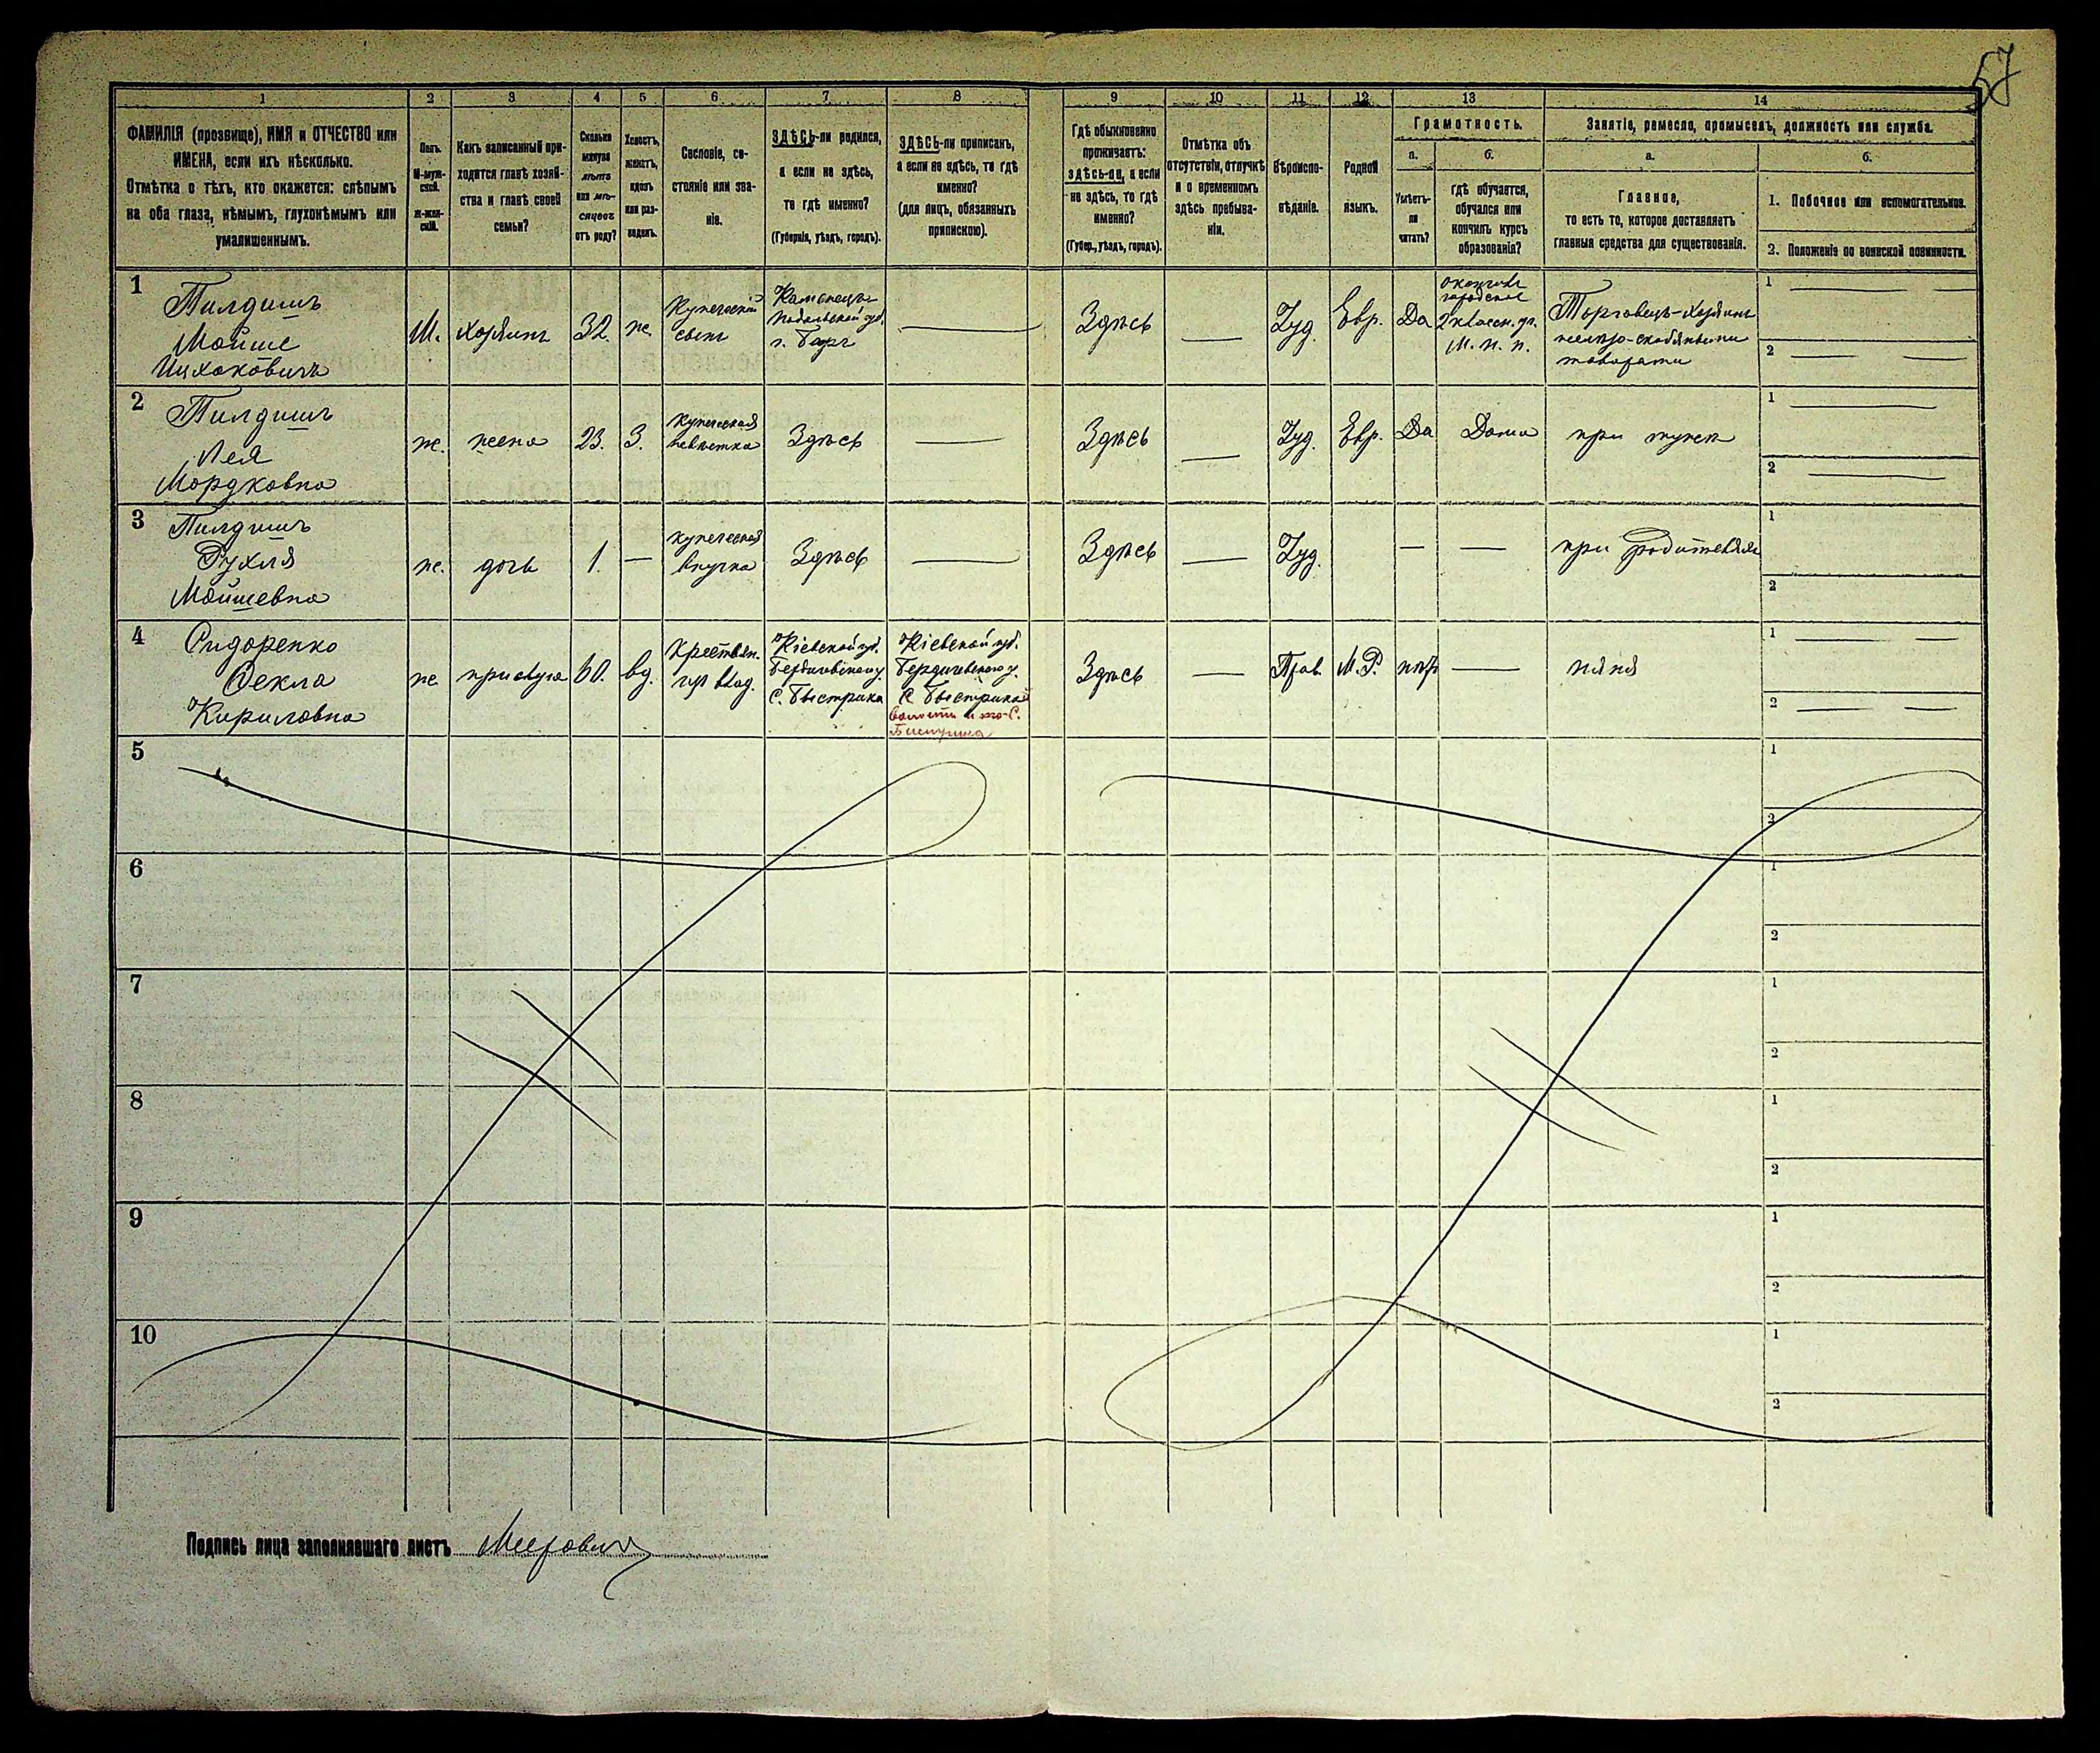 57
1 2 3 4 5 6 7 8 9 10 11 12 13 14
ФАМИЛІЯ (прозвище), ИМЯ и ОТЧЕСТВО или
ИМЕНА, если ихъ нѣсколько.
Отмѣтка о тѣхъ, кто окажется: слѣпымъ
на оба глаза, нѣмымъ, глухонѣмымъ или
умалишеннымъ.
Полъ.
М-муж-
ской.
ж-жен-
скій.
Какъ записанный при-
ходится главѣ хозяй-
ства и главѣ своей
семьи?
Сколько
минуло
лѣтъ
или мѣ-
сяцевъ
отъ роду?
Холостъ,
женатъ,
вдовъ
или раз-
веденъ.
Сословіе, со-
стояніе или зва-
ніе.
ЗДѢСЬ-ли родился,
а если не здѣсь,
то гдѣ именно?
(Губернія, уѣздъ, городъ).
ЗДѢСЬ-ли приписанъ,
а если не здѣсь, то гдѣ
именно?
(для лицъ, обязанныхъ
припискою).
Гдѣ обыкновенно
проживаетъ:
здѣсь-ли, а если
не здѣсь, то гдѣ
именно?
(Губер., уѣздъ, городъ).
Отмѣтка объ
отсутствіи, отлучкѣ
и о временномъ
здѣсь пребыва-
ніи.
Вѣроиспо-
вѣданіе.
Родной
языкъ.
Грамотность.
а.
Умѣетъ-
ли
читать?
б.
гдѣ обучается,
обучался или
кончилъ курсъ
образованія?
Занятіе, ремесло, промыселъ, должность или служба.
а.
Главное,
то есть то, которое доставляетъ
главныя средства для существованія.
б.
1. Побочное или вспомогательное.
2. Положеніе по воинской повинности.
1
Пилдишъ
Мойше
Ицхоковичъ
М.
хозяинъ
32
ж.
Купеческій
сынъ
Каменецъ
Подольской губ.
г. Баръ
Здѣсь
Іуд.
Евр.
Да
окончилъ
городское
2 классн. уч.
М. н. п.
Торговецъ-хозяинъ
желѣзо-скобяными
товарами
1
2
2
Пилдишъ
Лея
Мордковна
ж.
жена
23.
З.
купеческая
невѣстка
Здѣсь
Здѣсь
Іуд.
Евр.
Да
Дома
при мужѣ
1
2
3
Пилдишъ
Рухля
Мойшевна
ж.
дочь
1.
купеческая
внучка
Здѣсь
Здѣсь
Іуд.
при родителяхъ
1
2
4
Сидоренко
Фекла
Кириловна
ж
прислуга
60.
вд.
Крестьян.
изъ влад.
Кіевской губ.
Бердичевского у.
С. Быстрика
Кіевской губ.
Бердичевского у.
С. Быстрикъ
Здѣсь
Прав.
М. Р.
нѣтъ
няня
1
2
5
1
2
6
1
2
7
1
2
8
1
2
9
1
2
10
1
2
Подпись лица заполнявшаго листъ